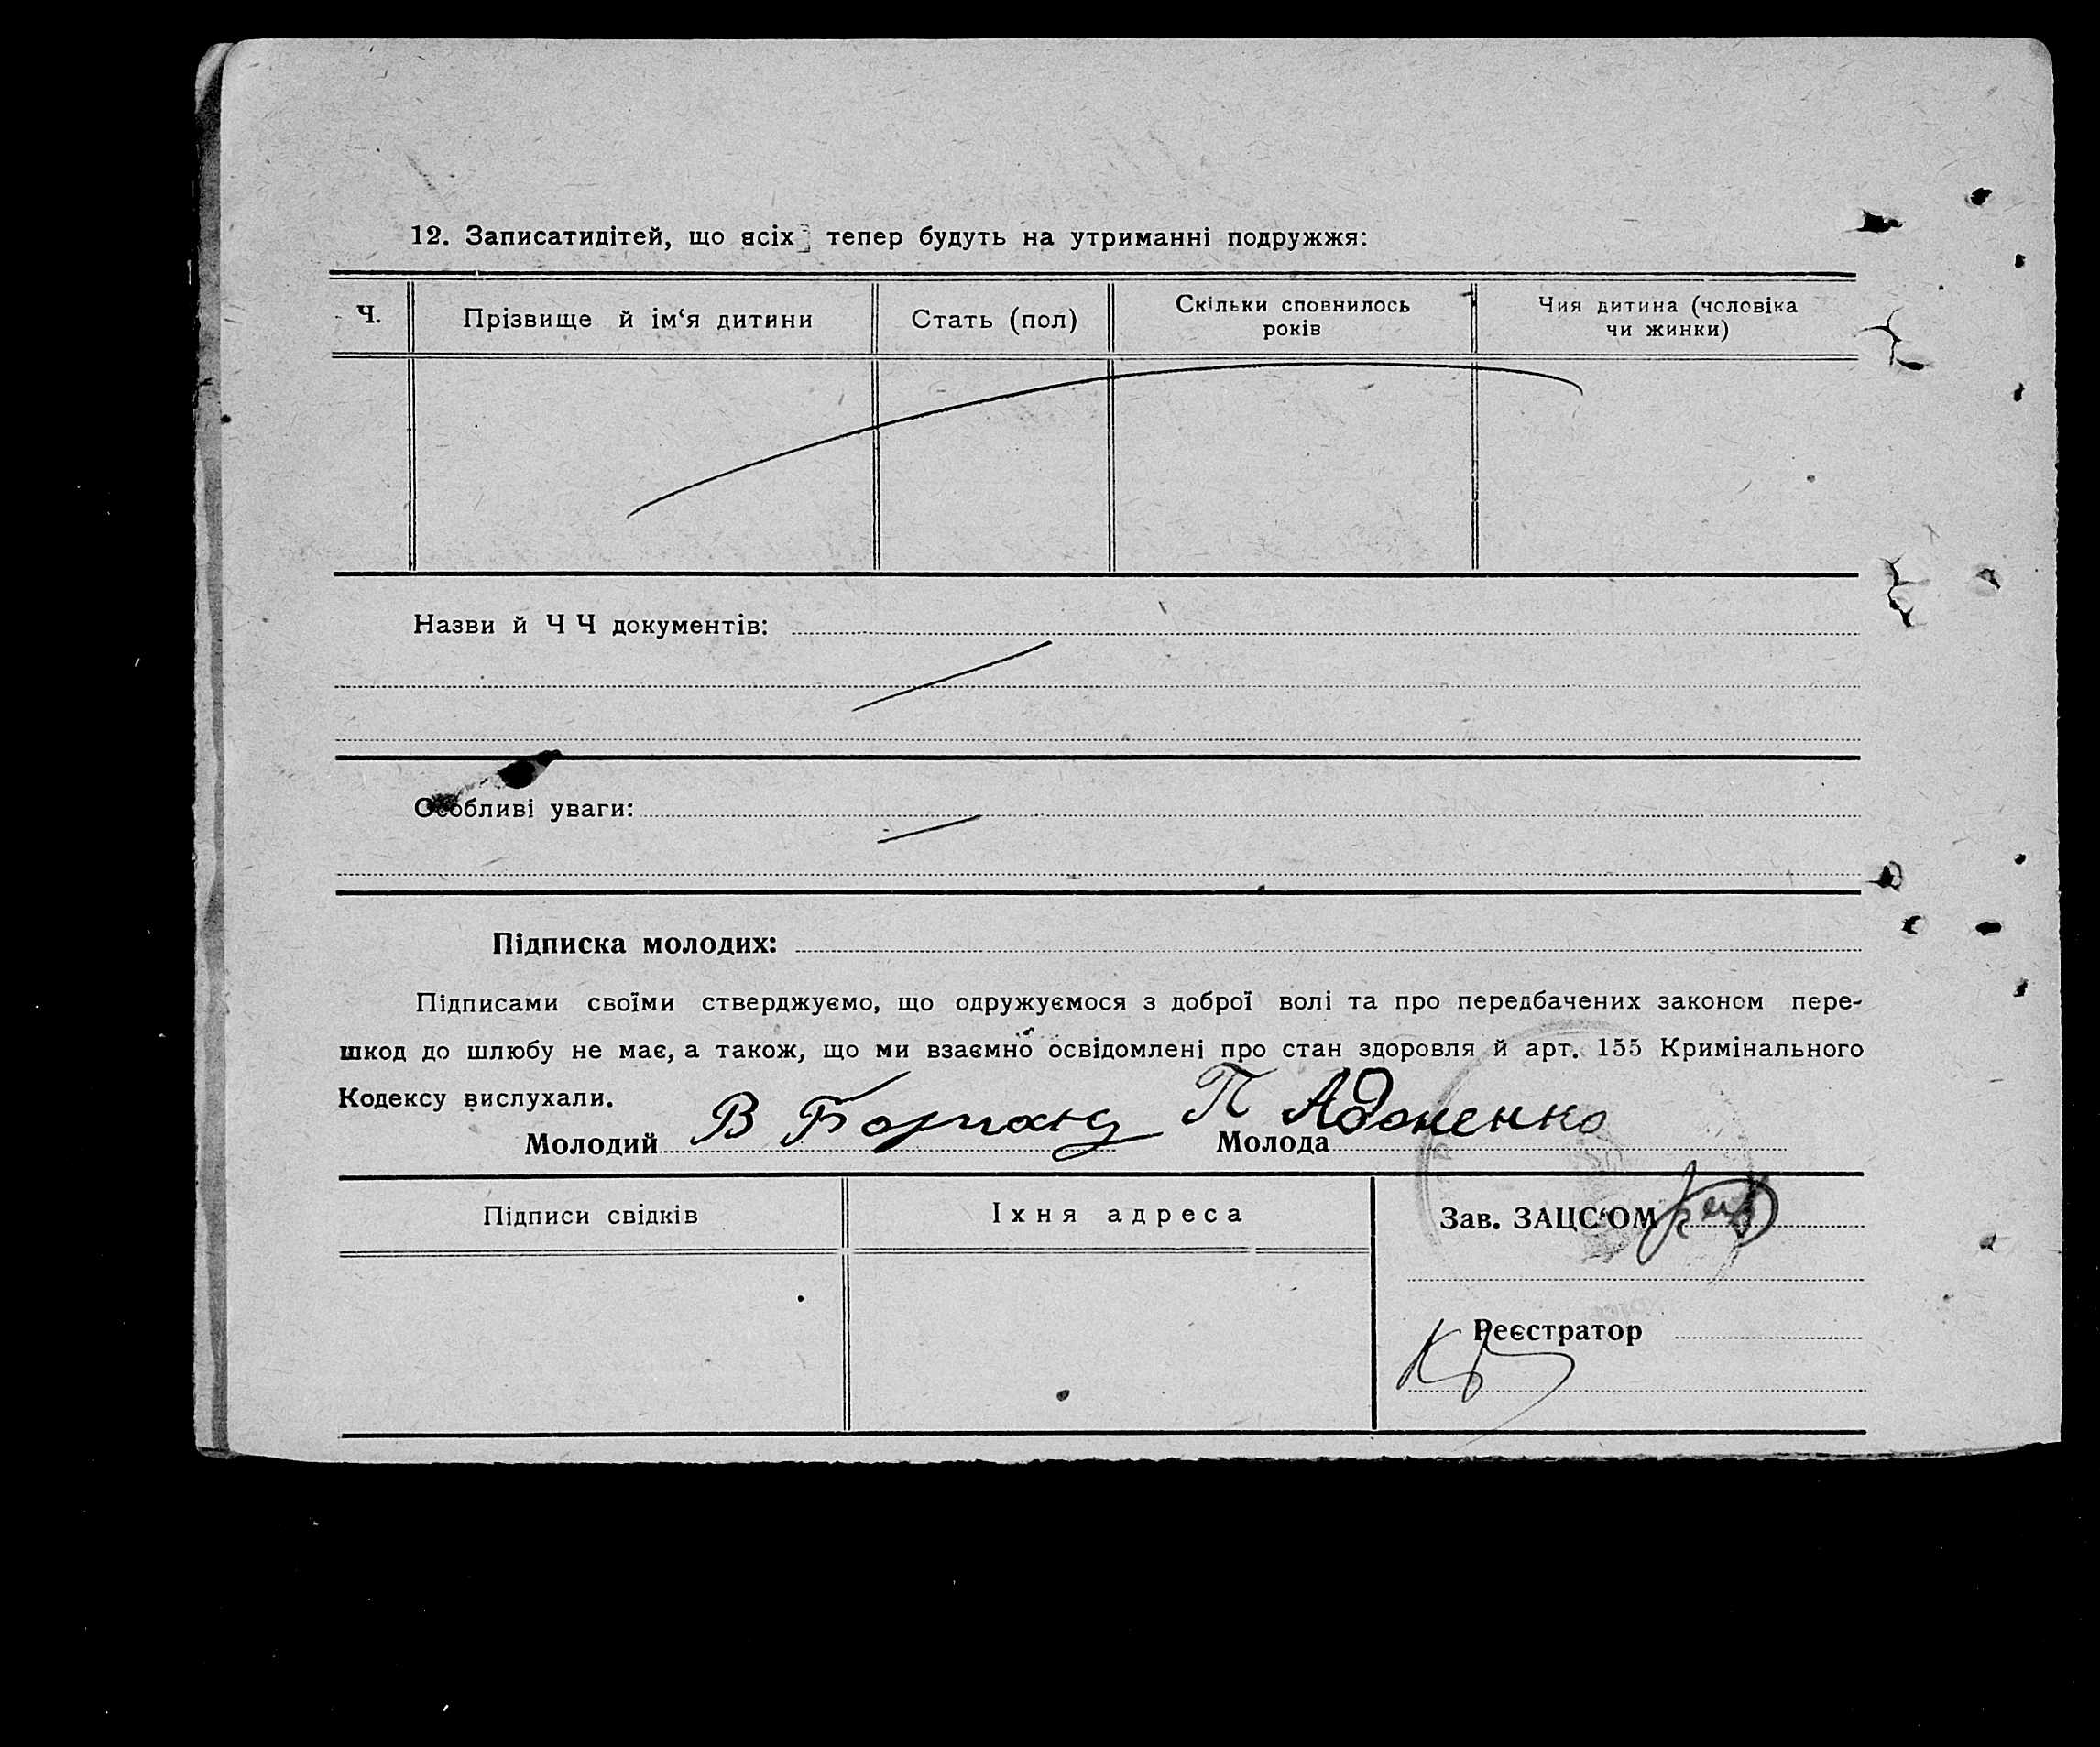 12. Записатидітей, що всіх тепер будуть на утриманні подружжя:
Ч.
Прізвище й ім‘я дитини
Стать (пол)
Скільки сповнилось
років
Чия дитина (чоловіка
чи жинки)
Назви й Ч Ч документів:
Особливі уваги:
Підписка молодих:
Підписами своїми стверджуємо, що одружуємося з доброї волі та про передбачених законом пере-
шкод до шлюбу не має, а також, що ми взаємно освідомлені про стан здоровля й арт. 155 Кримінального
Кодексу вислухали.
Молодий В
Молода П Адоненко
Підписи свідків
Їхня адреса
Зав. ЗАЦС‘ОМ
Реєстратор